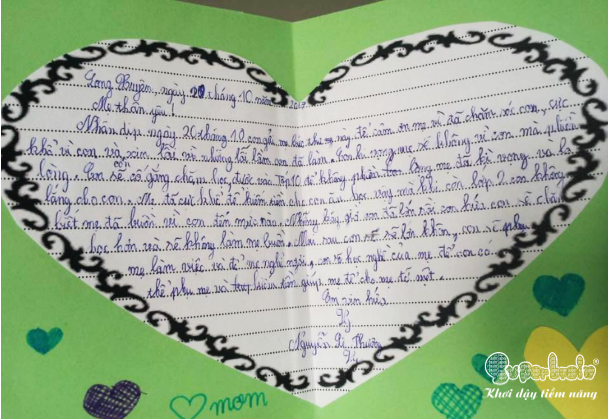 Long Xuyên, ngày 20 tháng 10 năm
Mẹ thân yêu!
Nhân dịp ngày 20 tháng 10 con gửi mẹ bức thư này để cảm ơn mẹ vì đã chăm sóc con, cực
khổ vì con và xin lỗi vì những lỗi lầm con đã làm. Con hi vọng mẹ sẽ không vì con mà phiền
lòng. Con sẽ cố gắng chăm học, được vào Top 10 để không phụ lòng mẹ đã kì vọng và lo
lắng cho con. Mẹ đã cực khổ để kiếm tiền cho con ăn học vậy mà khi còn lớp 2 con không
biết mẹ đã buồn vì con đến mức nào. Nhưng bây giờ con đã lớn rồi con hứa con sẽ chăm
học hơn và sẽ không làm mẹ buồn. Mai sau con sẽ lớn khôn, con sẽ phụ
mẹ làm việc và để mẹ nghỉ ngơi, con sẽ học nghề của mẹ để con có
thể phụ mẹ và kiếm tiền giúp mẹ để cho mẹ đỡ mệt.
Con xin hứa
Ký
Nguyễn
Vy
mom
Superbrain
Khơi dậy tiềm năng